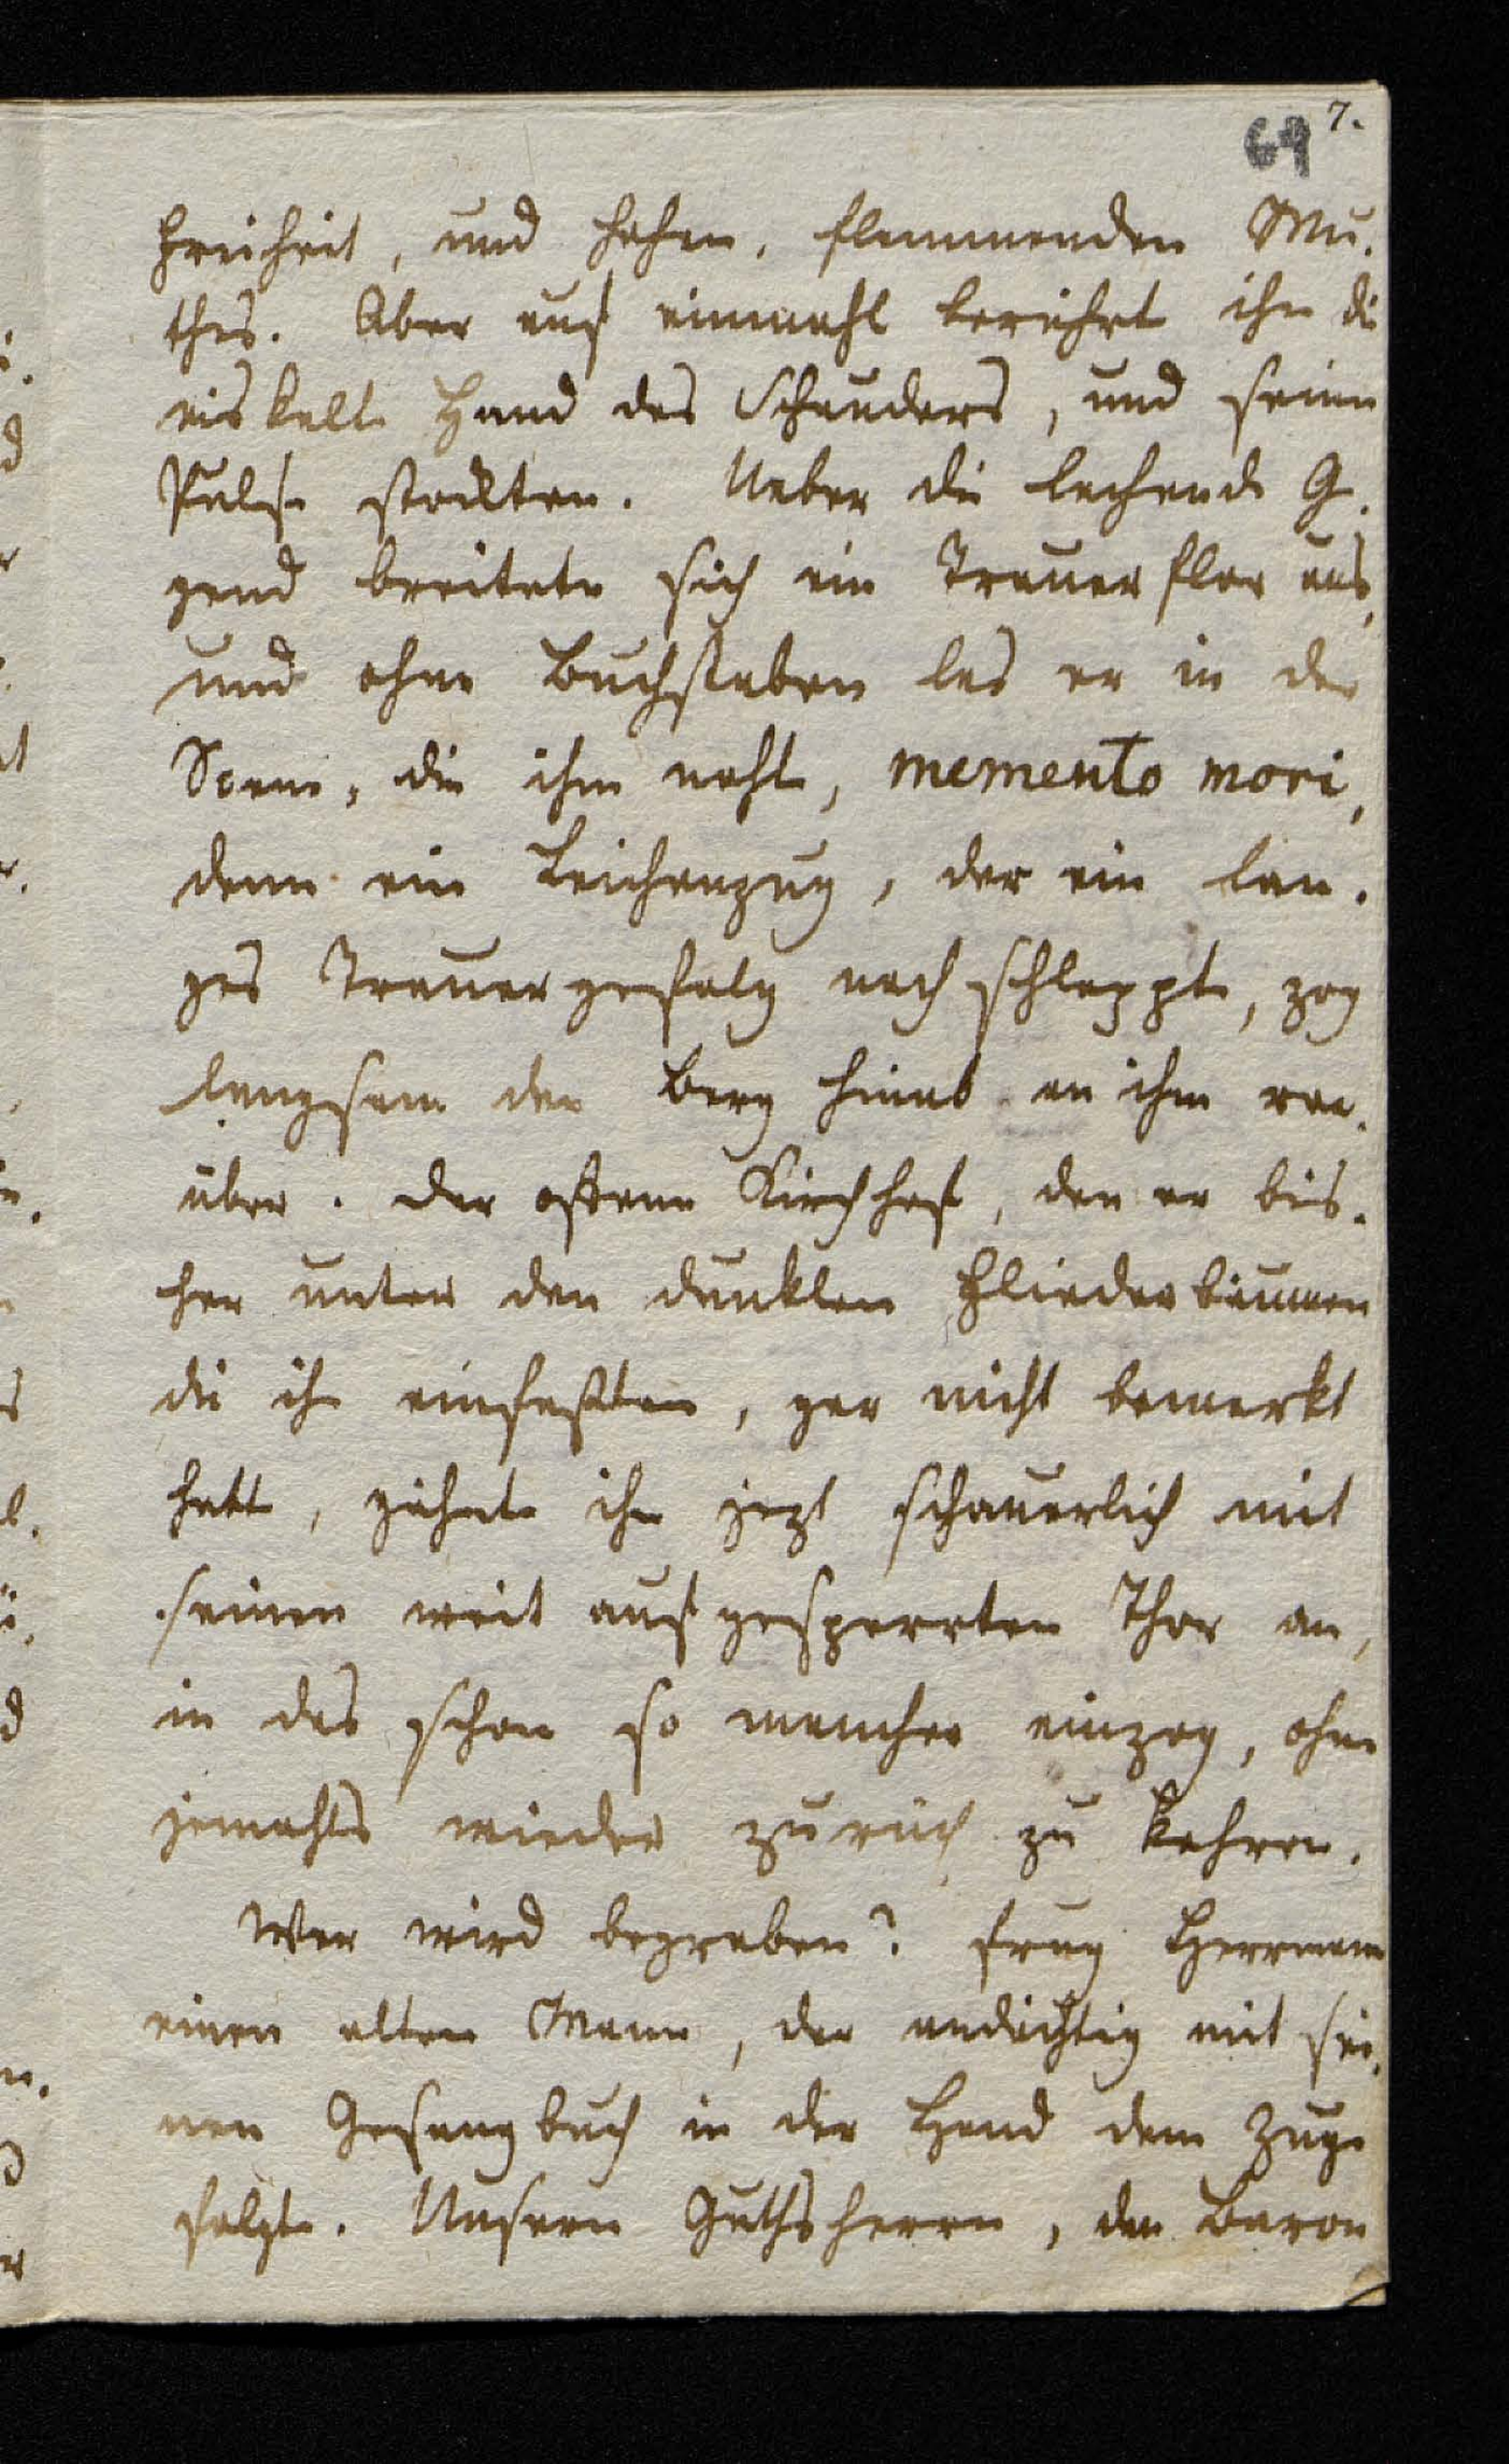 7.
69
Freiheit, und hohen, flammenden Mu-
thes. Aber auf einmahl berührte ihn die
eiskalte Hand des Schauders, und seine
Pulse stockten. Ueber die lachende Ge-
gend breitete sich ein Trauerflor aus,
und ohne Buchstaben las er in der
Scene, die ihm nahte, memento mori,
denn ein Leichenzug, der ein lan-
ges Trauergefolg nach schleppte, zog
langsam den Berg hinab an ihm vor-
über. Der offene Kirchhof, den er bis-
her unter den dunklen Fliederbäumen
die ihn einfaßten, gar nicht bemerkt
hatte, gähnte ihn jezt schauerlich mit
seinen weit aufgesperrten Thor an,
in das schon so mancher einzog, ohne
jemahls wieder zurück zu kehren.
Wer wird begraben? frug Herrmann
einen alten Mann, der andächtig mit sei-
nen Gesangbuch in der Hand dem Zuge
folgte. Unsern Guthsherrn, den Baron